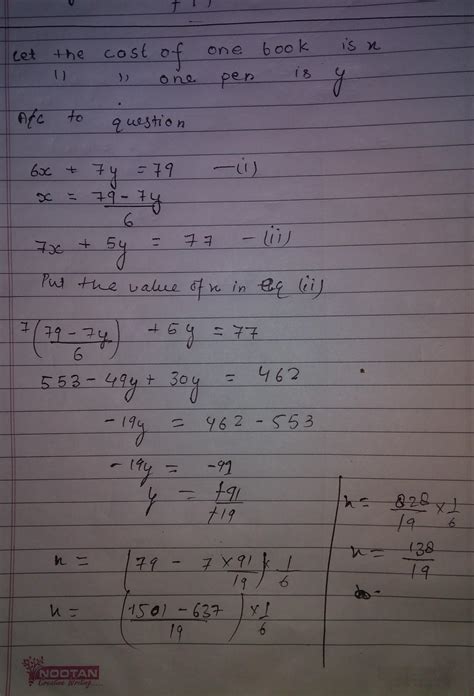 Let the cost of one book is x
" " one pen is y
A/c to question
6x + 7y = 79 —(i)
x = 79 - 7y / 6
7x + 5y = 77 —(ii)
Put the value of x in eq (ii)
7 (79 - 7y / 6) + 5y = 77
553 - 49y + 30y = 462
-19y = 462 - 553
-19y = -91
y = +91 / +19
x = (79 - 7 × 91 / 19) × 1/6
x = (1501 - 637 / 19) × 1/6
x = 828 / 19 × 1/6
x = 138 / 19
NOOTAN
Creative Writing